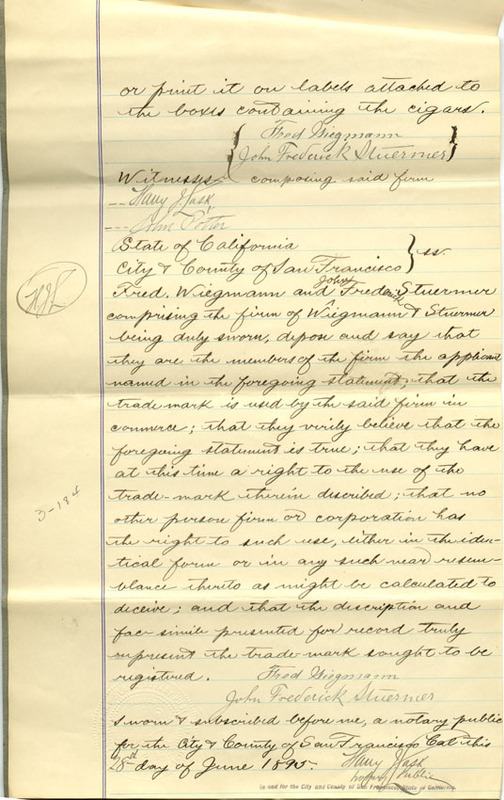 or print it on labels attached to
the boxes containing the cigars.
Fred Wiegmann
John Frederick Stuermer
Witnesses composing said firm
Harry J Lask
John Potter
State of California
City & County of San Francisco } ss.
John
Fred. Wiegmann and Frederick Stuermer
comprising the firm of Wiegmann & Stuermer
being duly sworn, depose and say that
they are the members of the firm the applicant
named in the foregoing statement; that the
trade mark is used by the said firm in
commerce; that they verily believe that the
foregoing statement is true; that they have
at this time a right to the use of the
trade-mark therein discribed; that no
other person firm or corporation has
the right to such use, either in the iden-
tical form or in any such near resem-
blance thereto as might be calculated to
deceive; and that the discription and
fac-simile presented for record truly
represent the trade-mark sought to be
registered. Fred Wiegmann
John Frederick Stuermer
Sworn & subscribed before me, a notary public
for the City & County of San Francisco Cal this
28th day of June 1895. Harry J Lask
Notary Public
In and for the City and County of San Francisco, State of California.
3-184